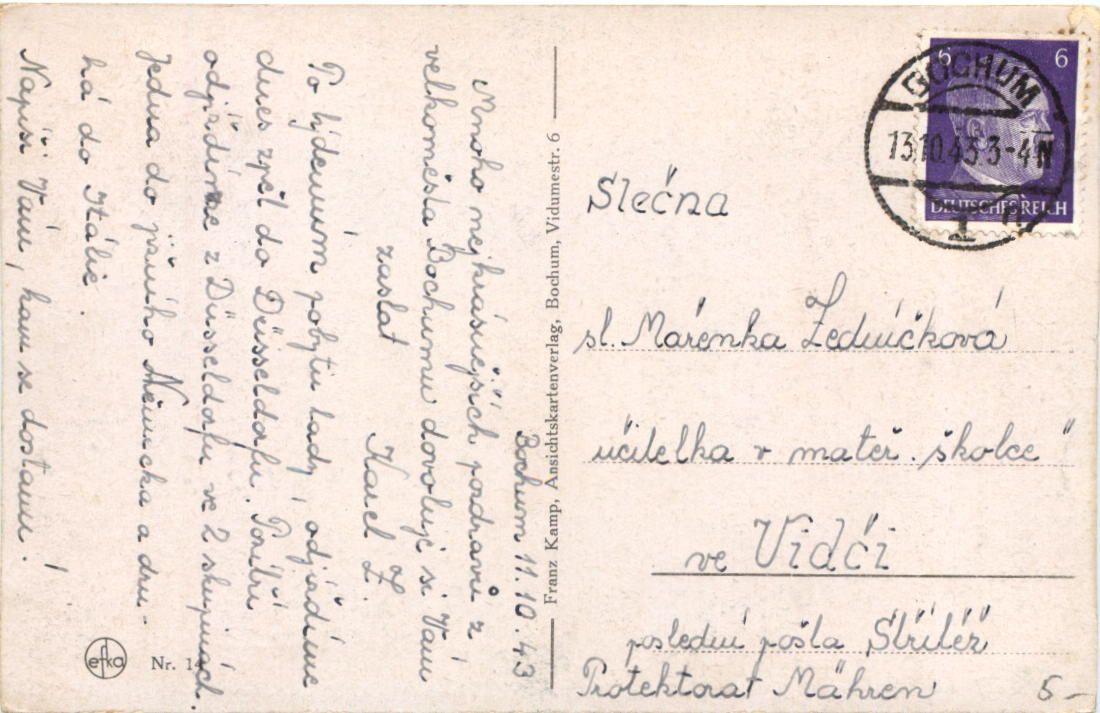 Bochum 11.10.43
Mnoho nejkrásnějších pozdravů z
velkoměsta Bochumu dovoluji si Vám
zaslat Karel Z.
To týdenním pobytu tady, odjíždíme
dnes zpět do Düsseldorfu. Pozítří
odjíždíme z Düsseldorfu ve 2 skupinách.
Jedna do jižního Německa a dru-
há do Itálie.
Napíši Vám, kam se dostanu!
efka Nr. 14
Franz Kamp, Ansichtskartenverlag, Bochum, Vidumestr. 6
6 6
BOCHUM
13.10.43 3-4 N
1 n
DEUTSCHES REICH
Slečna
sl. Mařenka Zedníčková
učitelka v mateř. školce "
ve Vidči
poslední pošta Střítěž
Protektorat Mähren
5-